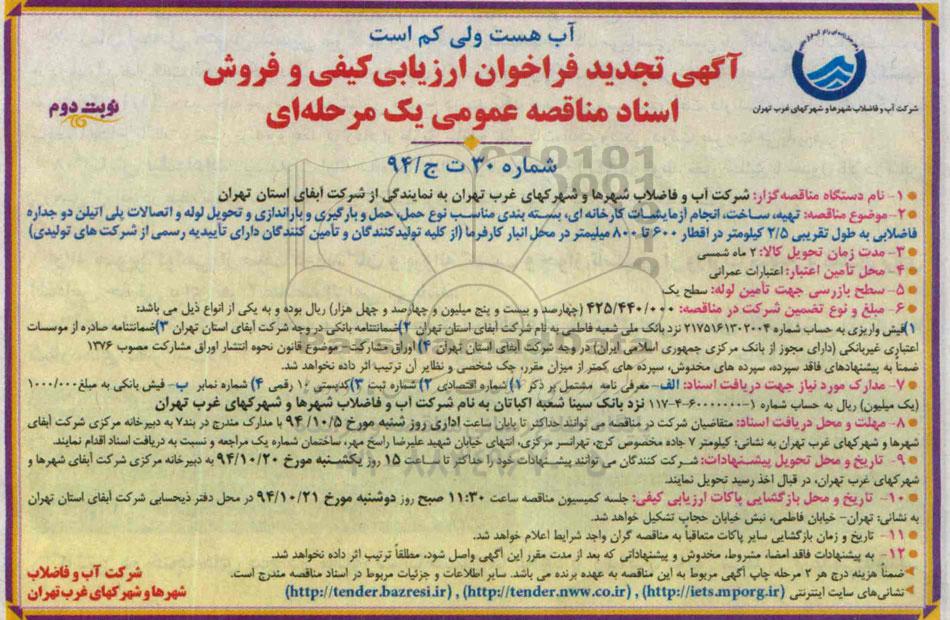 آب هست ولی کم است
آگهی تجدید فراخوان ارزیابی کیفی و فروش
اسناد مناقصه عمومی یک مرحله‌ای
شرکت آب و فاضلاب شهرها و شهرکهای غرب تهران
نوبت دوم
شماره ۳۰ ت ج/۹۴
۱- نام دستگاه مناقصه‌گزار: شرکت آب و فاضلاب شهرها و شهرکهای غرب تهران به نمایندگی از شرکت آبفای استان تهران
۲-موضوع مناقصه: تهیه، ساخت، انجام آزمایشات کارخانه ای، بسته بندی مناسب نوع حمل، حمل و بارگیری و باراندازی و تحویل لوله و اتصالات پلی اتیلن دو جداره
فاضلابی به طول تقریبی ۲/۵ کیلومتر در اقطار ۶۰۰ تا ۸۰۰ میلیمتر در محل انبار کارفرما (از کلیه تولیدکنندگان و تأمین کنندگان دارای تأییدیه رسمی از شرکت های تولیدی)
۳- مدت زمان تحویل کالا: ۲ ماه شمسی
۴- محل تأمین اعتبار: اعتبارات عمرانی
۵- سطح بازرسی جهت تأمین لوله: سطح یک
۶- مبلغ و نوع تضمین شرکت در مناقصه: ۴۲۵/۴۴۰/۰۰۰ (چهارصد و بیست و پنج میلیون و چهارصد و چهل هزار) ریال بوده و به یکی از انواع ذیل می باشد:
۱)فیش واریزی به حساب شماره ۲۱۷۵۱۶۱۳۰۲۰۰۴ نزد بانک ملی شعبه فاطمی به نام شرکت آبفای استان تهران ۲)ضمانتنامه بانکی در وجه شرکت آبفای استان تهران ۳)ضمانتنامه صادره از موسسات
اعتباری غیربانکی (دارای مجوز از بانک مرکزی جمهوری اسلامی ایران) در وجه شرکت آبفای استان تهران ۴) اوراق مشارکت- موضوع قانون نحوه انتشار اوراق مشارکت مصوب ۱۳۷۶
ضمناً به پیشنهادهای فاقد سپرده، سپرده های مخدوش، سپرده های کمتر از میزان مقرر، چک شخصی و نظایر آن ترتیب اثر داده نخواهد شد.
۷- مدارک مورد نیاز جهت دریافت اسناد: الف- معرفی نامه مشتمل بر ذکر ۱) شماره اقتصادی ۲) شماره ثبت ۳)کدپستی ۱۰ رقمی ۴) شماره نمابر ب- فیش بانکی به مبلغ ۱/۰۰۰/۰۰۰
(یک میلیون) ریال به حساب شماره ۱-۶۰۰۰۰۰۰۰-۴-۱۱۷ نزد بانک سینا شعبه اکباتان به نام شرکت آب و فاضلاب شهرها و شهرکهای غرب تهران
۸- مهلت و محل دریافت اسناد: متقاضیان شرکت در مناقصه می توانند حداکثر تا پایان ساعت اداری روز شنبه مورخ ۹۴/۱۰/۵ با مدارک مندرج در بند۷ به دبیرخانه مرکزی شرکت آبفای
شهرها و شهرکهای غرب تهران به نشانی: کیلومتر ۷ جاده مخصوص کرج، تهرانسر مرکزی، انتهای خیابان شهید علیرضا راسخ مهر، ساختمان شماره یک مراجعه و نسبت به دریافت اسناد اقدام نمایند.
۹- تاریخ و محل تحویل پیشنهادات: شرکت کنندگان می توانند پیشنهادات خود را حداکثر تا ساعت ۱۵ روز یکشنبه مورخ ۹۴/۱۰/۲۰ به دبیرخانه مرکزی شرکت آبفای شهرها و
شهرکهای غرب تهران، در قبال اخذ رسید تحویل نمایند.
۱۰- تاریخ و محل بازگشایی پاکات ارزیابی کیفی: جلسه کمیسیون مناقصه ساعت ۱۱:۳۰ صبح روز دوشنبه مورخ ۹۴/۱۰/۲۱ در محل دفتر ذیحسابی شرکت آبفای استان تهران
به نشانی: تهران- خیابان فاطمی، نبش خیابان حجاب تشکیل خواهد شد.
۱۱- تاریخ و زمان بازگشایی سایر پاکات متعاقباً به مناقصه گران واجد شرایط اعلام خواهد شد.
۱۲- به پیشنهادات فاقد امضا، مشروط، مخدوش و پیشنهاداتی که بعد از مدت مقرر این آگهی واصل شود، مطلقاً ترتیب اثر داده نخواهد شد.
ضمناً هزینه درج هر ۲ مرحله چاپ آگهی مربوط به این مناقصه به عهده برنده می باشد. سایر اطلاعات و جزئیات مربوط در اسناد مناقصه مندرج است.
نشانی‌های سایت اینترنتی (http://iets.mporg.ir) , (http://tender.nww.co.ir) , (http://tender.bazresi.ir)
شرکت آب و فاضلاب
شهرها و شهرکهای غرب تهران